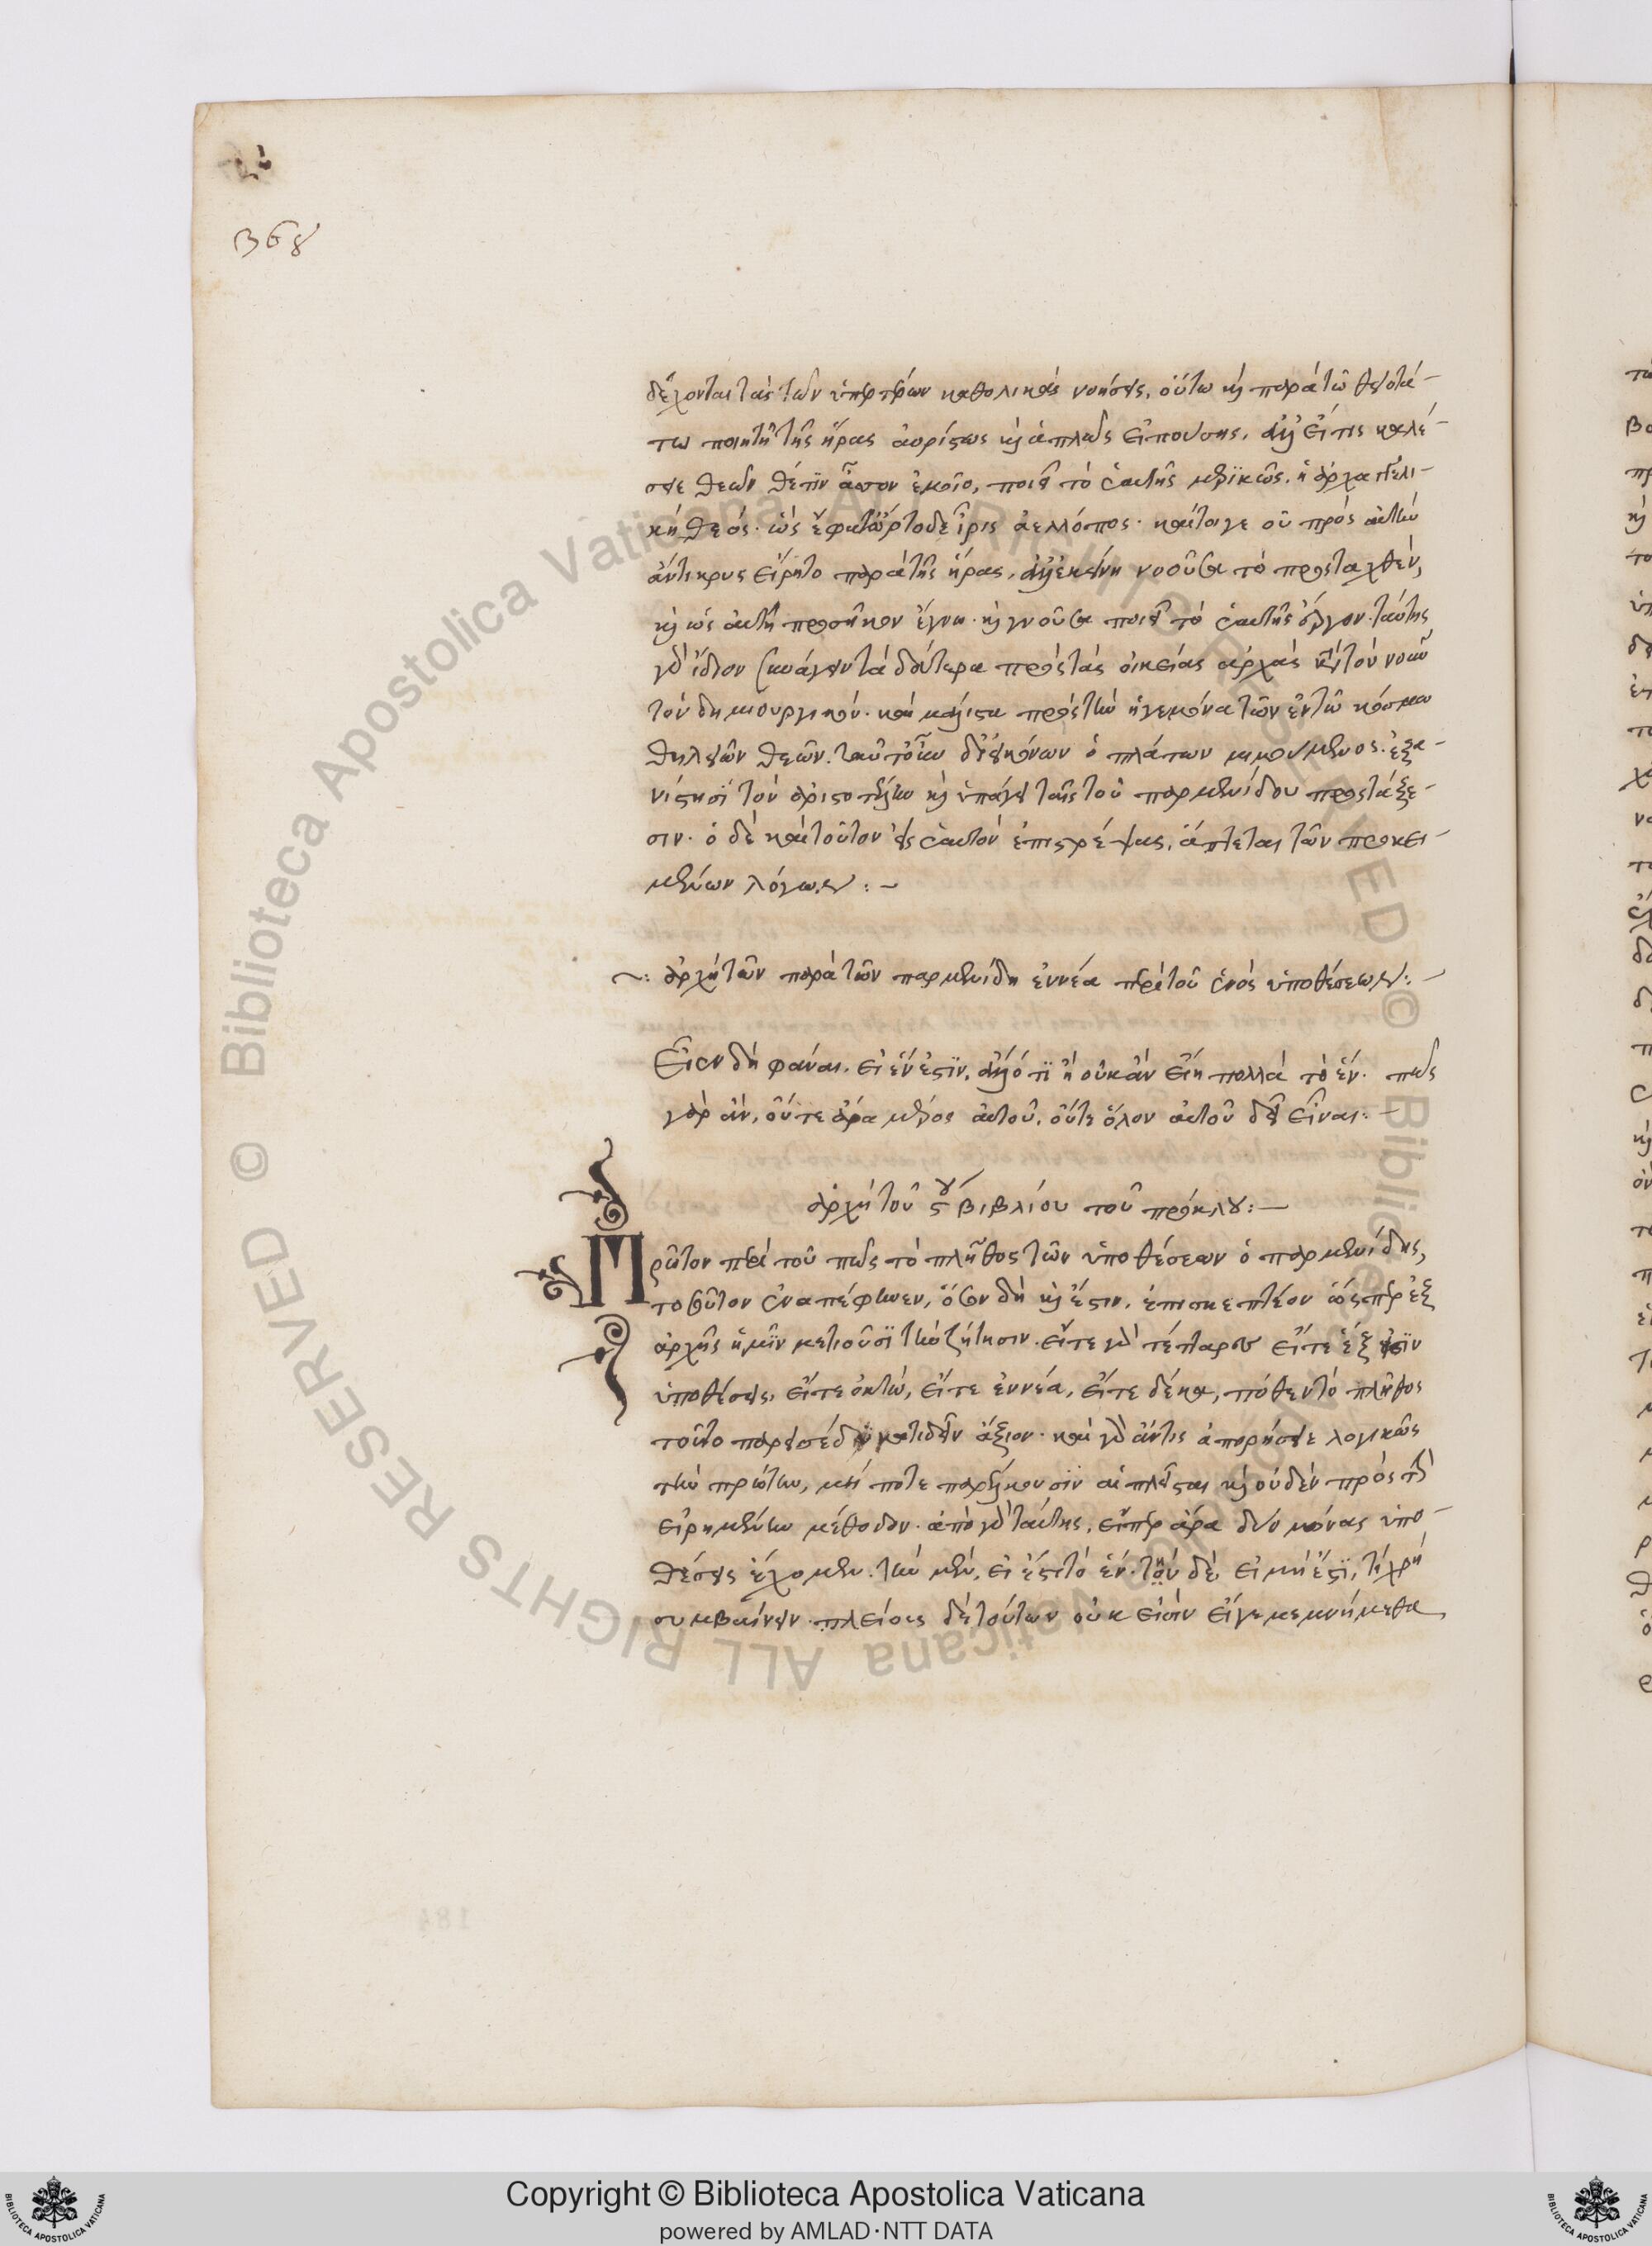 368
δέχονται τὰς τῶν ὑπερτέρων καθολικὰς νοήσεις, οὕτω καὶ παρὰ τῷ θειοτά-
τῳ ποιητῇ τῆς ἥρας ἀορίστως καὶ ἁπλῶς εἰπούσης, ἀλλ' εἴ τις καλέ-
σειε θεῶν θέτιν ἆσσον ἐμοῖο, ποιεῖ τὸ ἑαυτῆς μερικῶς, ἡ ἀρχαγγελι-
κὴ θεός· ὡς ἔφατ' ὦρτο δὲ ἶρις ἀελλόπος· καίτοιγε οὐ πρὸς αὐτὴν
ἄντικρυς εἴρητο παρὰ τῆς ἥρας, ἀλλ' ἐκείνη νοοῦσα τὸ προσταχθὲν,
καὶ ὡς αὐτῇ προσῆκον ἔγνω· καὶ γνοῦσα ποιεῖ τὸ ἑαυτῆς ἔργον· ταύτης
γὰρ ἴδιον συνάγειν τὰ δεύτερα πρὸς τὰς οἰκείας ἀρχὰς καὶ εἰς τὸν νοῦν
τὸν δημιουργικόν· καὶ μάλιστα πρὸς τὴν ἡγεμόνα τῶν ἐν τῷ κόσμῳ
θηλειῶν θεῶν. ταῦτ' οὖν δι' εἰκόνων ὁ πλάτων μιμούμενος· ἐξα-
νίστησι τὸν ἀριστοτέλην καὶ ὑπάγει ταῖς τοῦ παρμενίδου προστάξε-
σιν· ὁ δὲ καὶ τοῦτον εἰς ἑαυτὸν ἐπιστρέψας, ἅπτεται τῶν προκει-
μένων λόγων : -
~: ἀρχὴ τῶν παρὰ τῶν παρμενίδη ἐννέα περὶ τοῦ ἑνὸς ὑποθέσεων: -
Εἶεν δὴ φάναι. εἰ ἕν ἐστιν, ἄλλό τι ἢ οὐκ ἂν εἴη πολλὰ τὸ ἕν· πῶς
γὰρ ἄν, οὔτε ἄρα μέρος αὐτοῦ, οὔτε ὅλον αὐτοῦ δεῖ εἶναι: -
ἀρχὴ τοῦ ϛου βιβλίου τοῦ πρόκλου: —
Πρῶτον περὶ τοῦ πῶς τὸ πλῆθος τῶν ὑποθέσεων ὁ παρμενίδης,
τοσοῦτον ἀναπέφηνεν, ὅσον δὴ καὶ ἔστιν, ἐπισκεπτέον ὥσπερ ἐξ
ἀρχῆς ἡμῖν μετιοῦσι τὴν ζήτησιν. εἴτε γὰρ τέτταρες εἴτε ἕξ εἰσὶν
ὑποθέσεις, εἴτε ὀκτὼ, εἴτε ἐννέα, εἴτε δέκα, πόθεν τὸ πλῆθος
τοῦτο κατιδεῖν ἄξιον· καὶ γὰρ ἄν τις ἀπορήσειε λογικῶς
τὴν πρώτην, μή ποτε παρήκουσιν αἱ πλεῖσται καὶ οὐδὲν πρὸς τὴν
εἰρημένην μέθοδον· ἀπὸ γὰρ ταύτης, εἴπερ ἄρα δύο μόνας ὑπο-
θέσεις ἔχομεν. τὴν μὲν, εἰ ἔστι τὸ ἕν· τὴν δὲ, εἰ μὴ ἔστι, τί χρὴ
συμβαίνειν· πλείους δὲ τούτων οὐκ εἰσὶν εἴγε μεμνήμεθα
Copyright © Biblioteca Apostolica Vaticana
powered by AMLAD·NTT DATA